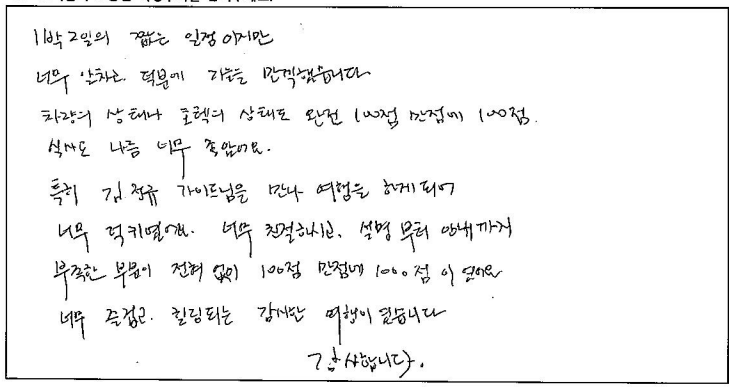 1박2일의 짧은 일정이지만
너무 알차고 덕분에 가을을 만끽했습니다
차량의 상태나 호텔의 상태도 완전 100점 만점에 100점.
식사도 나름 너무 좋았어요.
특히 김정규 가이드님을 만나 여행을 하게되어
너무 럭키였어요. 너무 친절하시고, 설명부터 안내까지
부족한 부분이 전혀 없이 100점 만점에 1000점 이였어요
너무 즐겁고 힐링되는 감사한 여행이 됬습니다
감사합니다.